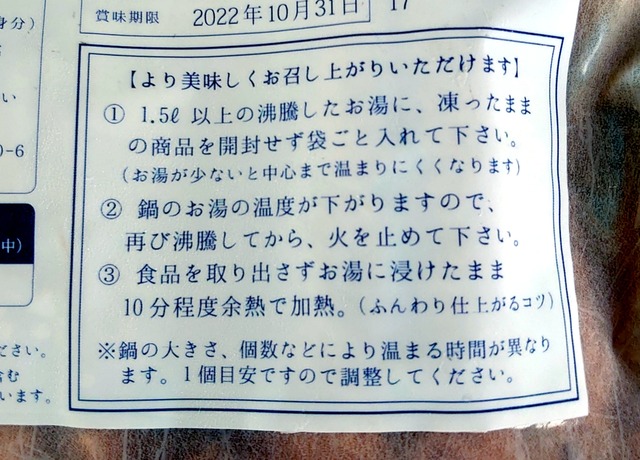 身分）
い
0-6
中）
ださい。
含む
います。
賞味期限 2022年10月31日 17
【より美味しくお召し上がりいただけます】
① 1.5ℓ 以上の沸騰したお湯に、凍ったまま
の商品を開封せず袋ごと入れて下さい。
（お湯が少ないと中心まで温まりにくくなります）
② 鍋のお湯の温度が下がりますので、
再び沸騰してから、火を止めて下さい。
③ 食品を取り出さずお湯に浸けたまま
10分程度余熱で加熱。（ふんわり仕上がるコツ）
※鍋の大きさ、個数などにより温まる時間が異なり
ます。1個目安ですので調整してください。